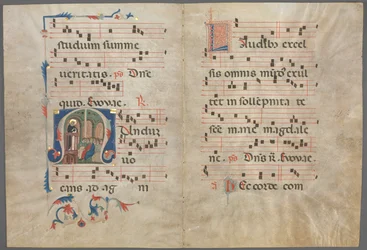 studium summe
ueritatis. ps Dñe
quid. Euouae. R.
Mundũ
uo
cans ad ag ni
Laudibꝰ excel
sis omnis mũdꝰ exul
tet in sollẽpnita te
sce marie magdale
ne. ps Dñs r̃. Euouae.
Pec corde com